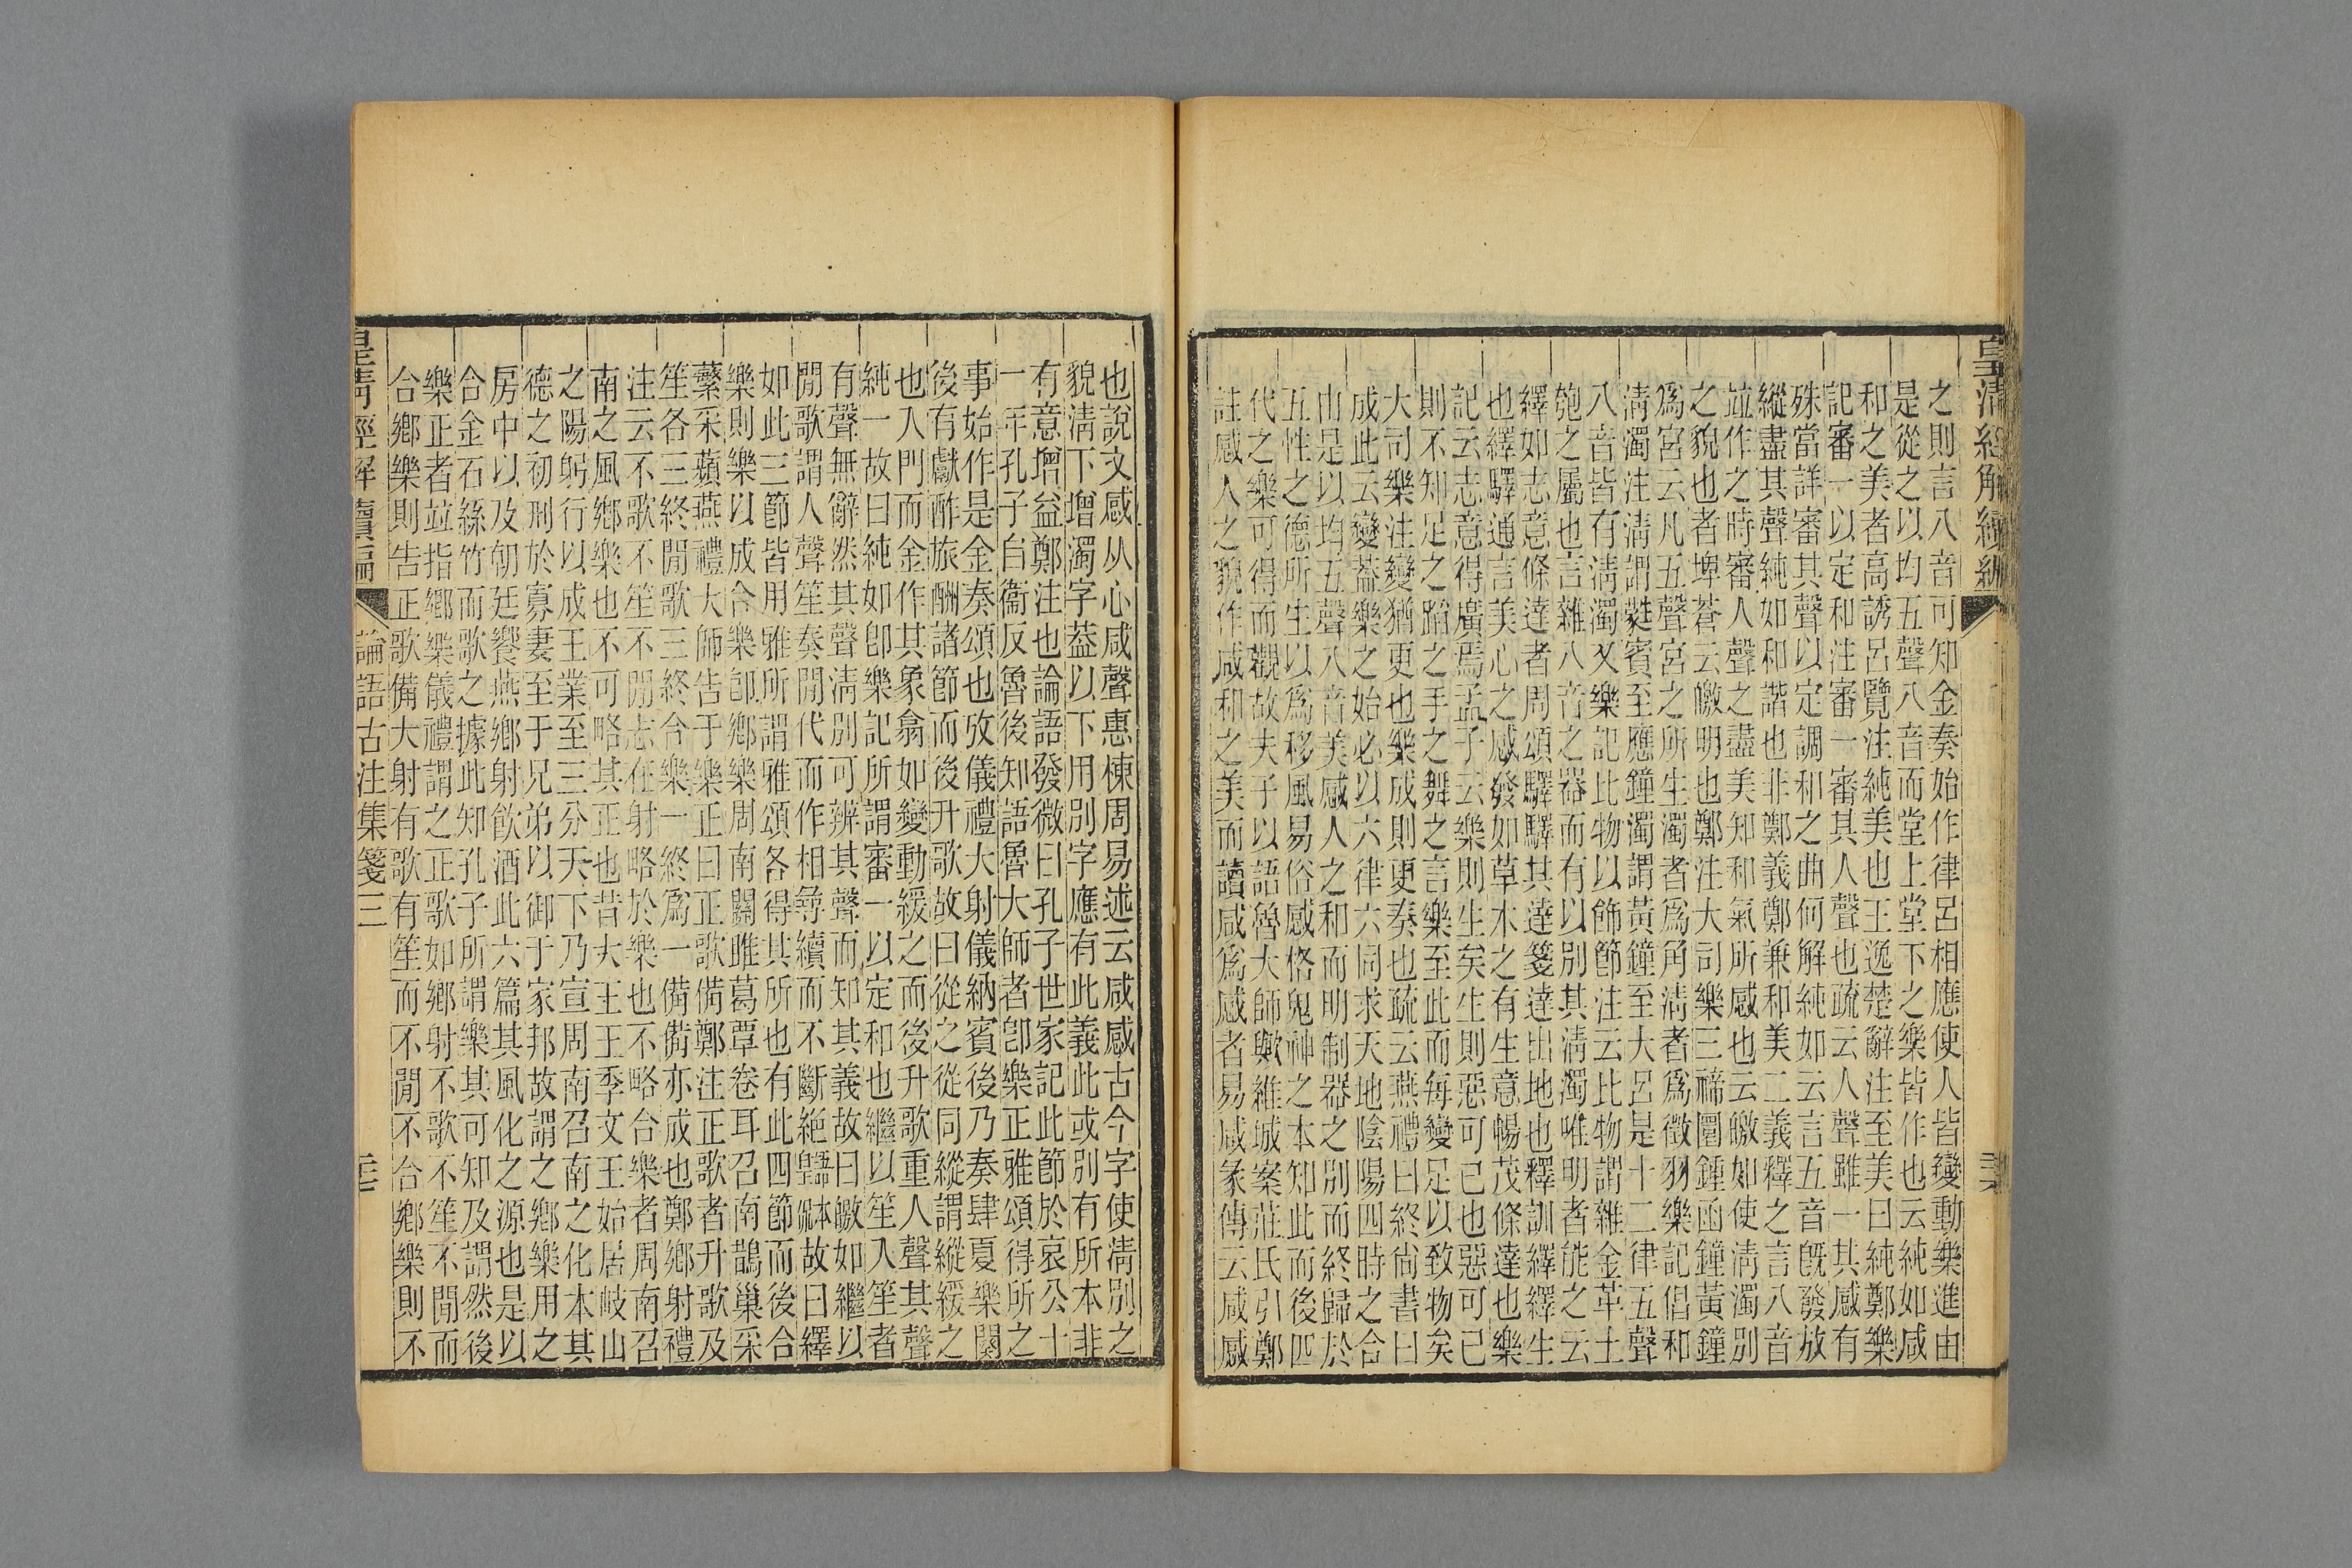 皇清經解續編
之則言八音可知金奏始作律呂相應使人皆變動樂進由
是從之以均五聲八音而堂上堂下之樂皆作也云純如咸
和之美者高誘呂覽注純美也王逸楚辭注至美曰純鄭樂
記審一以定和注審一審其人聲也疏云人聲雖一其感有
殊當詳審其聲以定調和之曲何解純如云言五音旣發放
縱盡其聲純如和諧也非鄭義鄭兼和美二義釋之言八音
竝作之時審人聲之盡美知和氣所感也云皦如使清濁別
之貌也者埤蒼云皦明也鄭注大司樂三禘圜鍾函鐘黃鐘
爲宮云凡五聲宮之所生濁者爲角清者爲徵羽樂記倡和
清濁注清謂蕤賓至應鐘濁謂黃鐘至大呂是十二律五聲
八音皆有清濁又樂記比物以飾節注云比物謂雜金革土
匏之屬也言雜八音之器而有以別其清濁唯明者能之云
繹如志意條達者周頌驛驛其達箋達出地也釋訓繹繹生
也繹驛通言美心之感發如草木之有生意暢茂條達也樂
記云志意得廣焉孟子云樂則生矣生則惡可已也惡可已
則不知足之蹈之手之舞之言樂至此而每變足以致物矣
大司樂注變猶更也樂成則更奏也疏云燕禮曰終尙書曰
成此云變葢樂之始必以六律六同求天地陰陽四時之合
由是以均五聲八音美感人之和而明制器之別而終歸於
五性之德所生以爲移風易俗感格鬼神之本知此而後匹
代之樂可得而觀故夫子以語魯大師歟維城案莊氏引鄭
註感人之貌作咸和之美而讀咸爲感者易咸彖傳云咸感
也說文感从心咸聲惠棟周易述云咸感古今字使清別之
貌淸下增濁字葢以下用別字應有此義此或別有所本非
有意增益鄭注也論語發微曰孔子世家記此節於哀公十
一年孔子自衞反魯後知語魯大師者卽樂正雅頌得所之
事始作是金奏頌也攷儀禮大射儀納賓後乃奏肆夏樂闋
後有獻酢旅酬諸節而後升歌故曰從之從同縱謂縱緩之
也入門而金作其象翕如變動緩之而後升歌重人聲其聲
純一故曰純如卽樂記所謂審一以定和也繼以笙入笙者
有聲無辭然其聲淸別可辨其聲而知其義故曰皦如繼以
閒歌謂人聲笙奏閒代而作相尋續而不斷絶故曰繹
如此三節皆用雅所謂雅頌各得其所也有此四節而後合
樂則樂以成合樂卽鄉樂周南關雎葛覃卷耳召南鵲巢采
蘩采蘋燕禮大師告于樂正曰正歌備鄭注正歌者升歌及
笙各三終閒歌三終合樂一終爲一備備亦成也鄭鄉射禮
注云不歌不笙不閒志在射略於樂也不略合樂者周南召
南之風鄉樂也不可略其正也昔大王王季文王始居岐山
之陽躬行以成王業至三分天下乃宣周南召南之化本其
德之初刑於寡妻至于兄弟以御于家邦故謂之鄉樂用之
房中以及朝廷饗燕鄉射飮酒此六篇其風化之源也是以
合金石絲竹而歌之據此知孔子所謂樂其可知及謂然後
樂正者竝指鄉樂儀禮謂之正歌如鄉射不歌不笙不閒而
合鄉樂則告正歌備大射有歌有笙而不閒不合鄉樂則不
皇清經解續編 論語古注集箋三